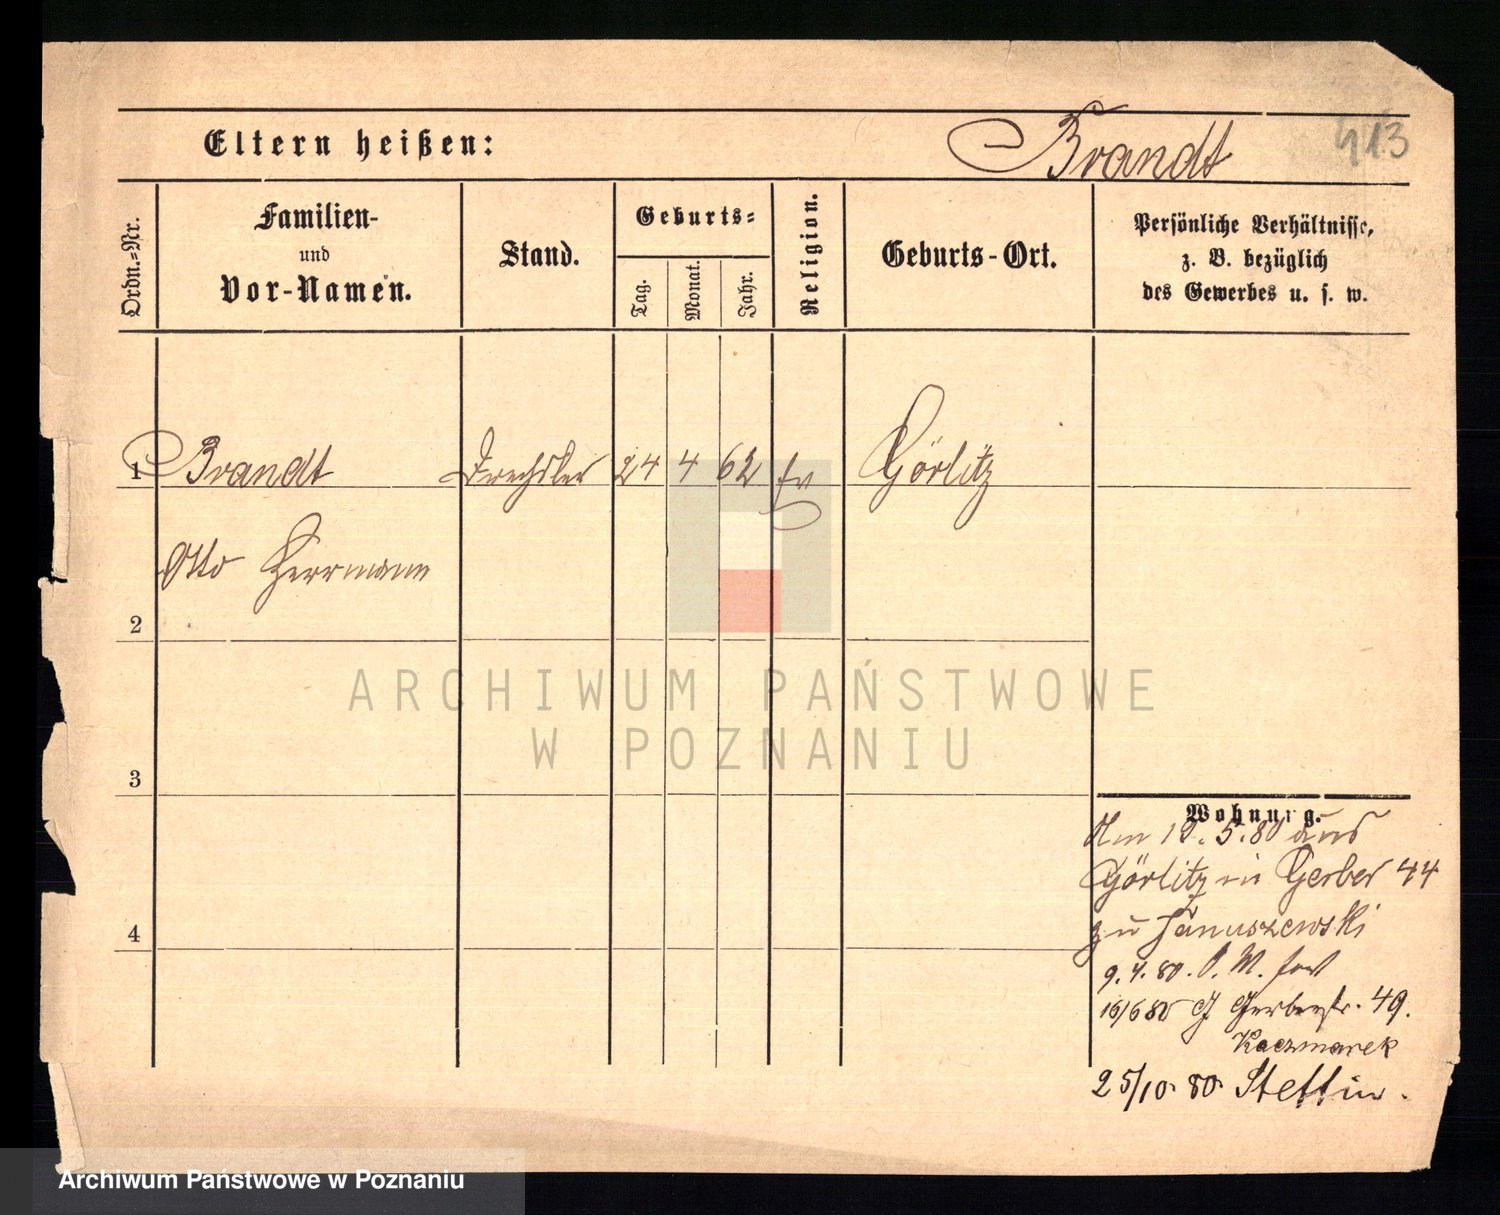 Eltern heißen:
Brandt
413
Ordn.=Nr.
Familien-
und
Vor-Namen.
Stand.
Geburts=
Tag.
Monat.
Jahr.
Religion.
Geburts-Ort.
Persönliche Verhältnisse,
z. B. bezüglich
des Gewerbes u. s. w.
1 Brandt Drechsler 24 4 62 Ev Görlitz
Otto Herrmann
2
3
4
Wohnung.
Am 19.5.80 aus
Görlitz in Gerber 44
zu Januszewski
9.4.80. P. M. fort
16/6 80 G Gerberstr. 49.
Kaczmarek
25/10 80 Stettin.
ARCHIWUM PAŃSTWOWE
W POZNANIU
Archiwum Państwowe w Poznaniu